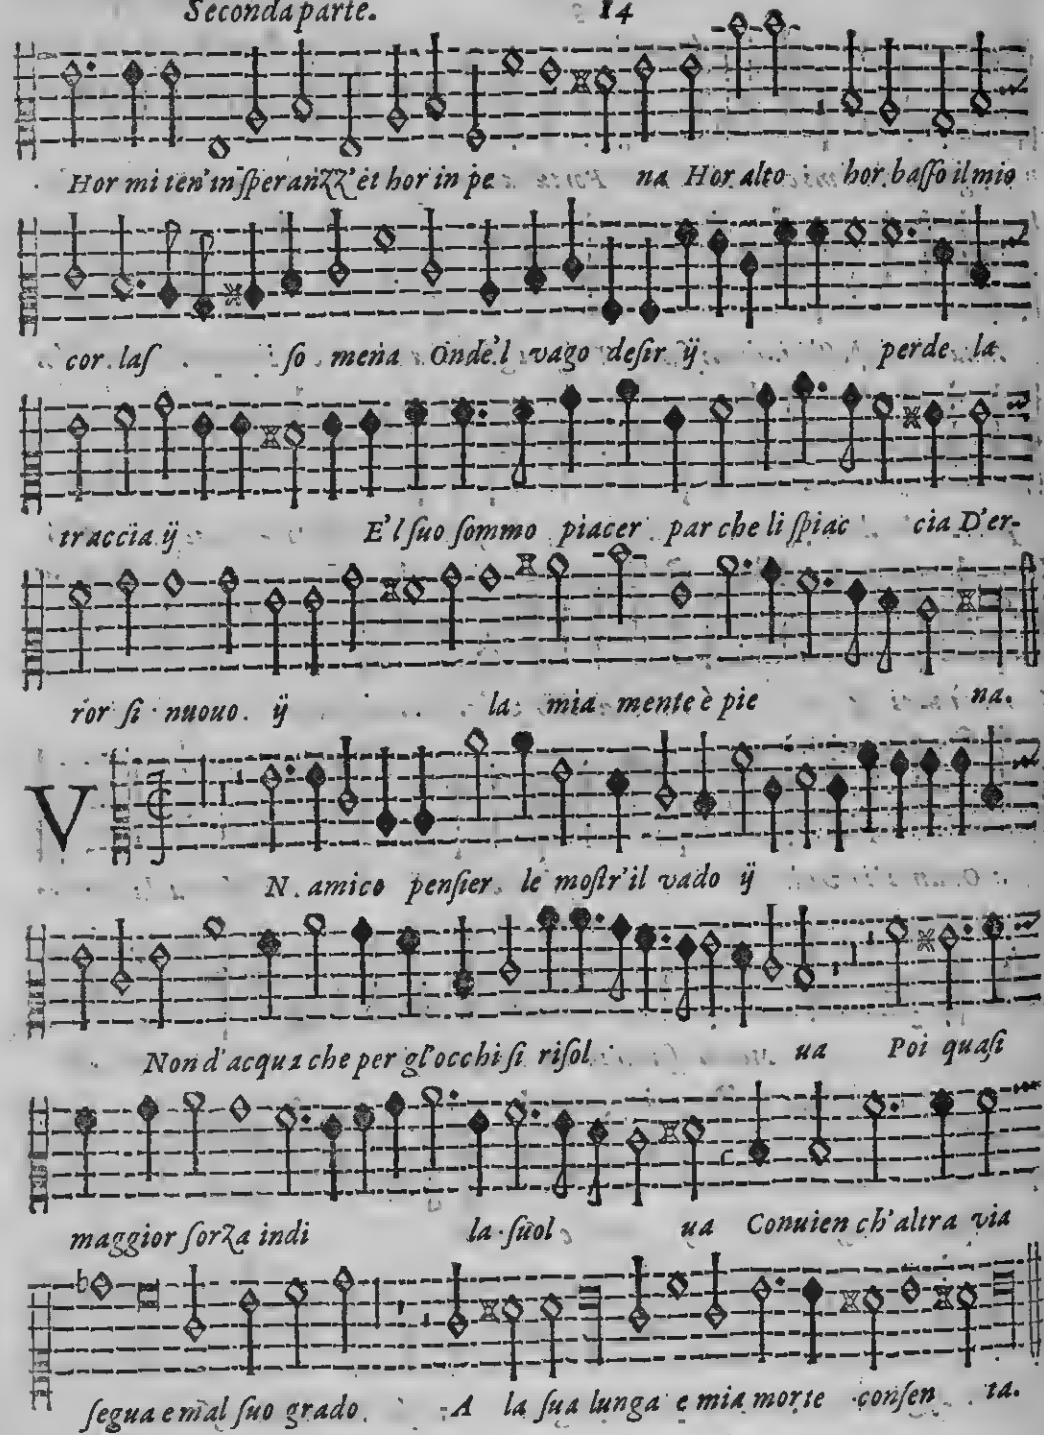 Seconda parte. 14
Hor mi tien' in ſperanZZ' et hor in pe na Hor alto hor baſſo il mio
cor laſ ſo mena Onde'l vago deſir ij perde la
traccia ij E'l ſuo ſommo piacer par che li ſpiac cia D'er-
ror ſi nuouo ij la mia mente è pie na.
V
N. amico penſier le moſtr'il vado ij
Non d'acqua che per gl'occhi ſi riſol ua Poi quaſi
maggior forZa indi la ſuol ua Conuien ch'altra via
ſegua e mal ſuo grado A la ſua lunga e mia morte conſen ta.